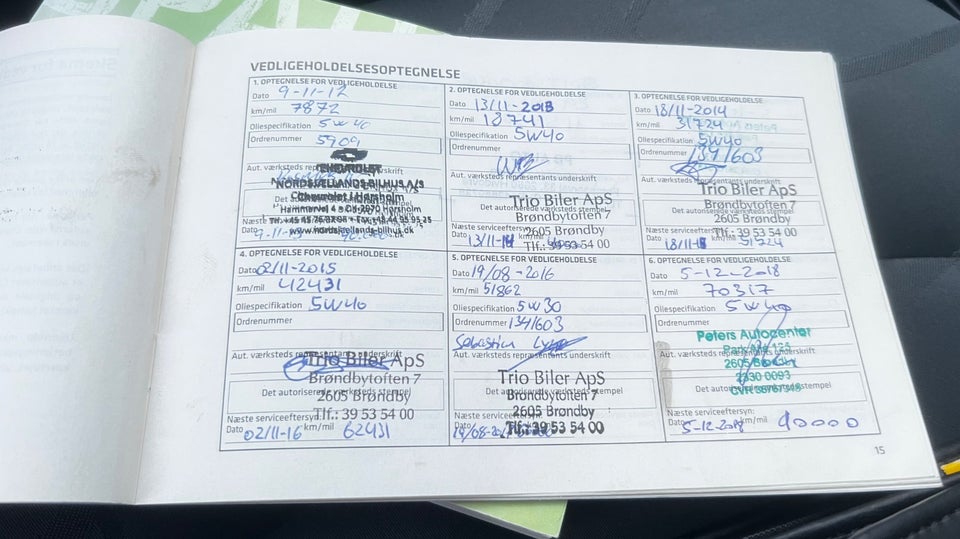 VEDLIGEHOLDELSESOPTEGNELSE
1. OPTEGNELSE FOR VEDLIGEHOLDELSE
Dato 9-11-12
km/mil 7872
Oliespecifikation 5W40
Ordrenummer 5909
Aut. værksteds
CHEVROLET
NORDSJÆLLANDS BILHUS A/S
Chevrolet i Hørsholm
Hammervej 4 • DK-2970 Hørsholm
www.nordsjaellands-bilhus.dk
Næste
Dato
2. OPTEGNELSE FOR VEDLIGEHOLDELSE
Dato 13/11-2013
km/mil 18741
Oliespecifikation 5W40
Ordrenummer
Aut. værksteds repræsentants underskrift
Trio Biler ApS
Det autoriserede værksteds stempel
Brøndbytoften 7
2605 Brøndby
Næste serviceeftersyn:
Dato 13/11-14
Tlf.: 39 53 54 00
3. OPTEGNELSE FOR VEDLIGEHOLDELSE
Dato 18/11-2014
km/mil 31724
Oliespecifikation 5W40
Ordrenummer 1341603
Aut. værksteds repræsentants underskrift
Trio Biler ApS
Det autoriserede værksteds stempel
Brøndbytoften 7
2605 Brøndby
Næste serviceeftersyn:
Tlf.: 39 53 54 00
Dato 18/11-15 51724
4. OPTEGNELSE FOR VEDLIGEHOLDELSE
Dato 02/11-2015
km/mil 42431
Oliespecifikation 5W40
Ordrenummer
Aut. værksteds repræsentants underskrift
Trio Biler ApS
Brøndbytoften 7
Det autoriserede værksteds stempel
2605 Brøndby
Næste serviceeftersyn:
Tlf.: 39 53 54 00
Dato 02/11-16 km/mil 62431
5. OPTEGNELSE FOR VEDLIGEHOLDELSE
Dato 19/08-2016
km/mil 51862
Oliespecifikation 5W30
Ordrenummer 1341603
Sebastian
Aut. værksteds repræsentants underskrift
Trio Biler ApS
Det autoriserede værksteds stempel
Brøndbytoften 7
2605 Brøndby
Næste serviceeftersyn:
Tlf.: 39 53 54 00
Dato
6. OPTEGNELSE FOR VEDLIGEHOLDELSE
Dato 5-12-2018
km/mil 70317
Oliespecifikation 5W40
Ordrenummer
Peters Autocenter
Park Allé
Aut. værksteds repræsentants underskrift
2605 Brøndby
Det autoriserede værksteds stempel
Næste serviceeftersyn:
Dato km/mil 90000
15